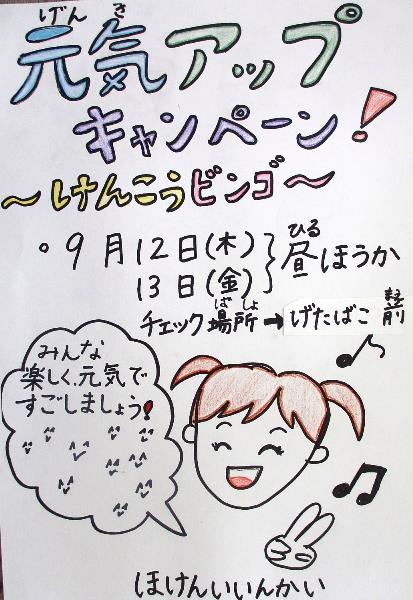 げんき
元気アップ
キャンペーン!
～けんこうビンゴ～
・9月12日(木)
13日(金)
ひる
昼ほうか
ばしょ
チェック場所→げたばこ前
みんな
楽しく、元気で
すごしましょう!
ほけんいいんかい